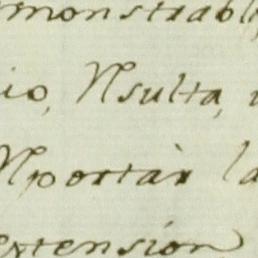 monstrabl
io, Nsulta,
Nportàr la
extensión